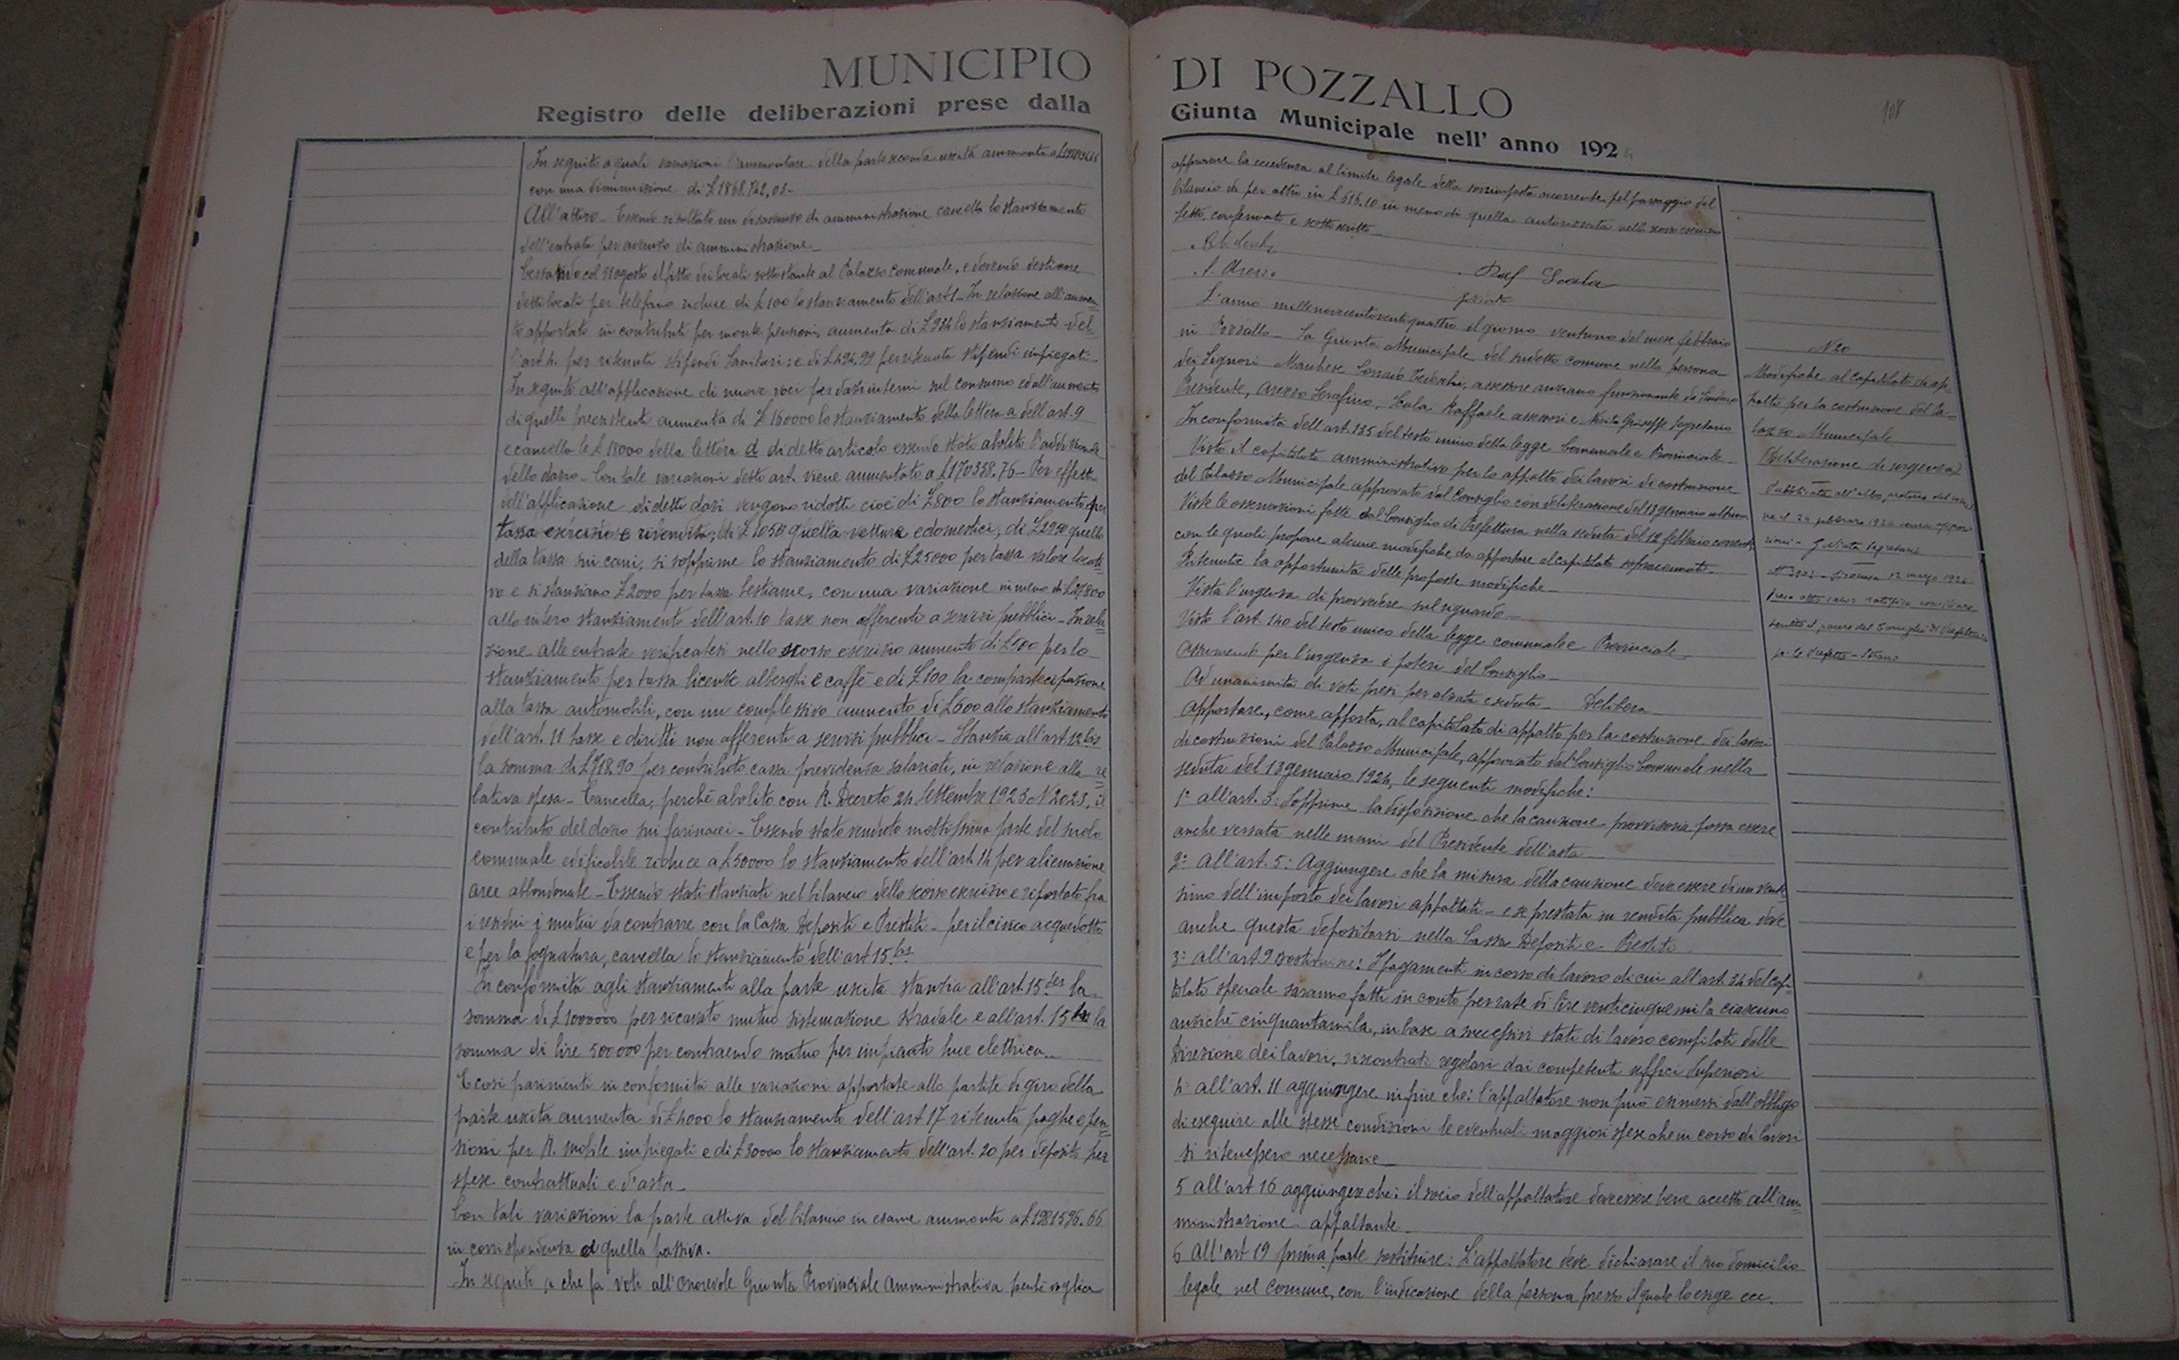 MUNICIPIO
Registro delle deliberazioni prese dalla
In seguito a quali variazioni l'ammontare della parte seconda uscita ammonta a
con una diminuzione di £ 1868.742,08-
All'attivo - Essendo risultato un disavanzo di amministrazione cancella lo stanziamento
dell'entrata per avanzo di amministrazione -
Cessando col 31 agosto il fitto dei locali sottostante al Palazzo comunale, e dovendo destinare
detti locali per telefono riduce di £ 100 lo stanziamento dell'art 1 - In relazione all'aumen
to apportato in contributi per monte pensioni, aumenta di £ lo stanziamento del-
l'art 4. per ritenuta stipendi Sanitari: e di £ 494,99 per ritenuta stipendi impiegati-
In seguito all'applicazione di nuove voci per dazi interni sul consumo ed all'aumento
di quelle preesistenti aumenta di £ 160000 lo stanziamento della lettera a dell'art. 9
e cancella le £ 18000 della lettera d di detto articolo essendo stato abolito l'addizionale
dello dazio - Con tale variazioni detto art. viene aumentato a £ 170358,76 - Per effetto
dell'applicazione di detti dazi vengono ridotti cioè di £ 800 lo stanziamento per
tassa esercizio e rivendita; di £ 1050 quella vetture e domestici, di £ 2950 quello
della tassa sui cani, si sopprime lo stanziamento di £ 25000 per tassa valore locati
vo e si stanziano £ 2000 per tassa bestiame, con una variazione in meno di £ 27800
allo intero stanziamento dell'art. 10 tasse non afferenti a servizi pubblici - In rela
zione alle entrate verificatesi nello scorso esercizio aumenta di £ 500 per lo
stanziamento per tassa licenze alberghi e caffè e di £ 100 la compartecipazione
alla tassa automobili, con un complessivo aumento di £ 600 allo stanziamento
dell'art. 11 tasse e diritti non afferenti a servizi pubblici - Stanzia all'art 12 bis
la somma di £ 718,90 per contributo cassa previdenza salariati, in relazione alla re
lativa spesa - Cancella, perché abolito con R. Decreto 24 Settembre 1923 N 2023, il
contributo del dazio sui farinacei - Essendo stato venduto moltissima parte del suolo
comunale edificabile riduce a £ 50000 lo stanziamento dell'art. 14 per alienazione
aree abbandonate - Essendo stati stanziati nel bilancio dello scorso esercizio e riportato fra
i residui i mutui da contrarre con la Cassa Depositi e Prestiti - per il civico acquedotto
e per la fognatura, cancella lo stanziamento dell'art 15 bis
In conformità agli stanziamenti alla parte uscita stanzia all'art. 15 la
somma di £ 1000000 per ricavato mutuo sistemazione stradale e all'art. 15 la
somma di lire 500000 per contraendo mutuo per impianto luce elettrica -
E così parimenti in conformità alle variazioni apportate alle partite di giro della
parte uscita aumenta di £ 4000 lo stanziamento dell'art 17 ritenuta paghe e pen
sioni per R. mobile impiegati e di £ 30000 lo stanziamento dell'art. 20 per deposito per
spese contrattuali e d'asta -
Con tali variazioni la parte attiva del bilancio in esame ammonta a £ 1981596.66
in corrispondenza a quella passiva.
In seguito a che fa voti all'Onorevole Giunta Provinciale Amministrativa perché voglia
DI POZZALLO
Giunta Municipale nell' anno 192
108
approvare la eccedenza al limite legale della sovrimposta occorrente pel pareggio del
bilancio che per altro in £ 516,10 in meno di quella autorizzata nello scorso esercizio
letto, confermato e sottoscritto -
Raf Scala
L'anno millenovecentoventiquattro il giorno ventuno del mese febbraio
in Pozzallo - La Giunta Municipale del sudetto comune nella persona
dei Signori Marchese Corrado Tedeschi, assessore anziano funzionante da Sindaco
Presidente, Arezzo Serafino, Scala Raffaele assessori e Giuseppe Segretario
In conformità dell'art. 135 del testo unico della legge Comunale e Provinciale -
Visto il capitolato amministrativo per lo appalto dei lavori di costruzione
del Palazzo Municipale approvato dal Consiglio con deliberazione del 13 gennaio ultimo
Viste le osservazioni fatte dal Consiglio di Prefettura nella seduta del 12 febbraio corrente
con le quali propone alcune modifiche da apportare al capitolato sopracennato -
Ritenute la opportunità delle proposte modifiche -
Vista l'urgenza di provvedere sul riguardo -
Visto l'art. 140 del testo unico della legge comunale e Provinciale
Assumendo per l'urgenza i poteri del Consiglio -
Ad unanimità di voti presi per alzata e seduta - Delibera
Apportare, come apporta, al capitolato di appalto per la costruzione dei lavori
di costruzioni del Palazzo Municipale, approvato dal Consiglio Comunale nella
seduta del 13 gennaio 1924, le seguenti modifiche:
1° all'art. 3: Sopprime la disposizione che la cauzione provvisoria possa essere
anche versata nelle mani del Presidente dell'asta -
2° all'art. 5: Aggiungere che la misura della cauzione deve essere di un vente
simo dell'importo dei lavori appaltati - e se prestata in rendita pubblica deve
anche questa depositarsi nella Cassa Depositi e Prestiti
3° all'art 9 sostituire: I pagamenti in corso di lavoro di cui all'art. 34 del capi-
tolato speciale saranno fatti in conto per rate di lire venticinquemila ciascuno
anziché cinquantamila, in base a successivi stati di lavoro compilati dalle
Direzione dei lavori, riscontrati regolari dai competenti uffici Superiori
4° all'art. 11 aggiungere infine che: l'appaltatore non può esimersi dall'obbligo
di eseguire alle stesse condizioni le eventuali maggiori spese che in corso di lavori
si ritenessero necessarie -
5 all'art 16 aggiungere che: il socio dell'appaltatore deve essere bene accetto all'am-
ministrazione appaltante -
6 all'art 19 prima parte sostituire: L'appaltatore deve dichiarare il suo domicilio
legale nel comune, con l'indicazione della persona presso il quale lo erige ecc.
N 20
Modifiche al capitolato di ap-
palto per la costruzione del Pa-
lazzo Municipale
(Deliberazione di urgenza)
Pubblicata all'albo pretorio